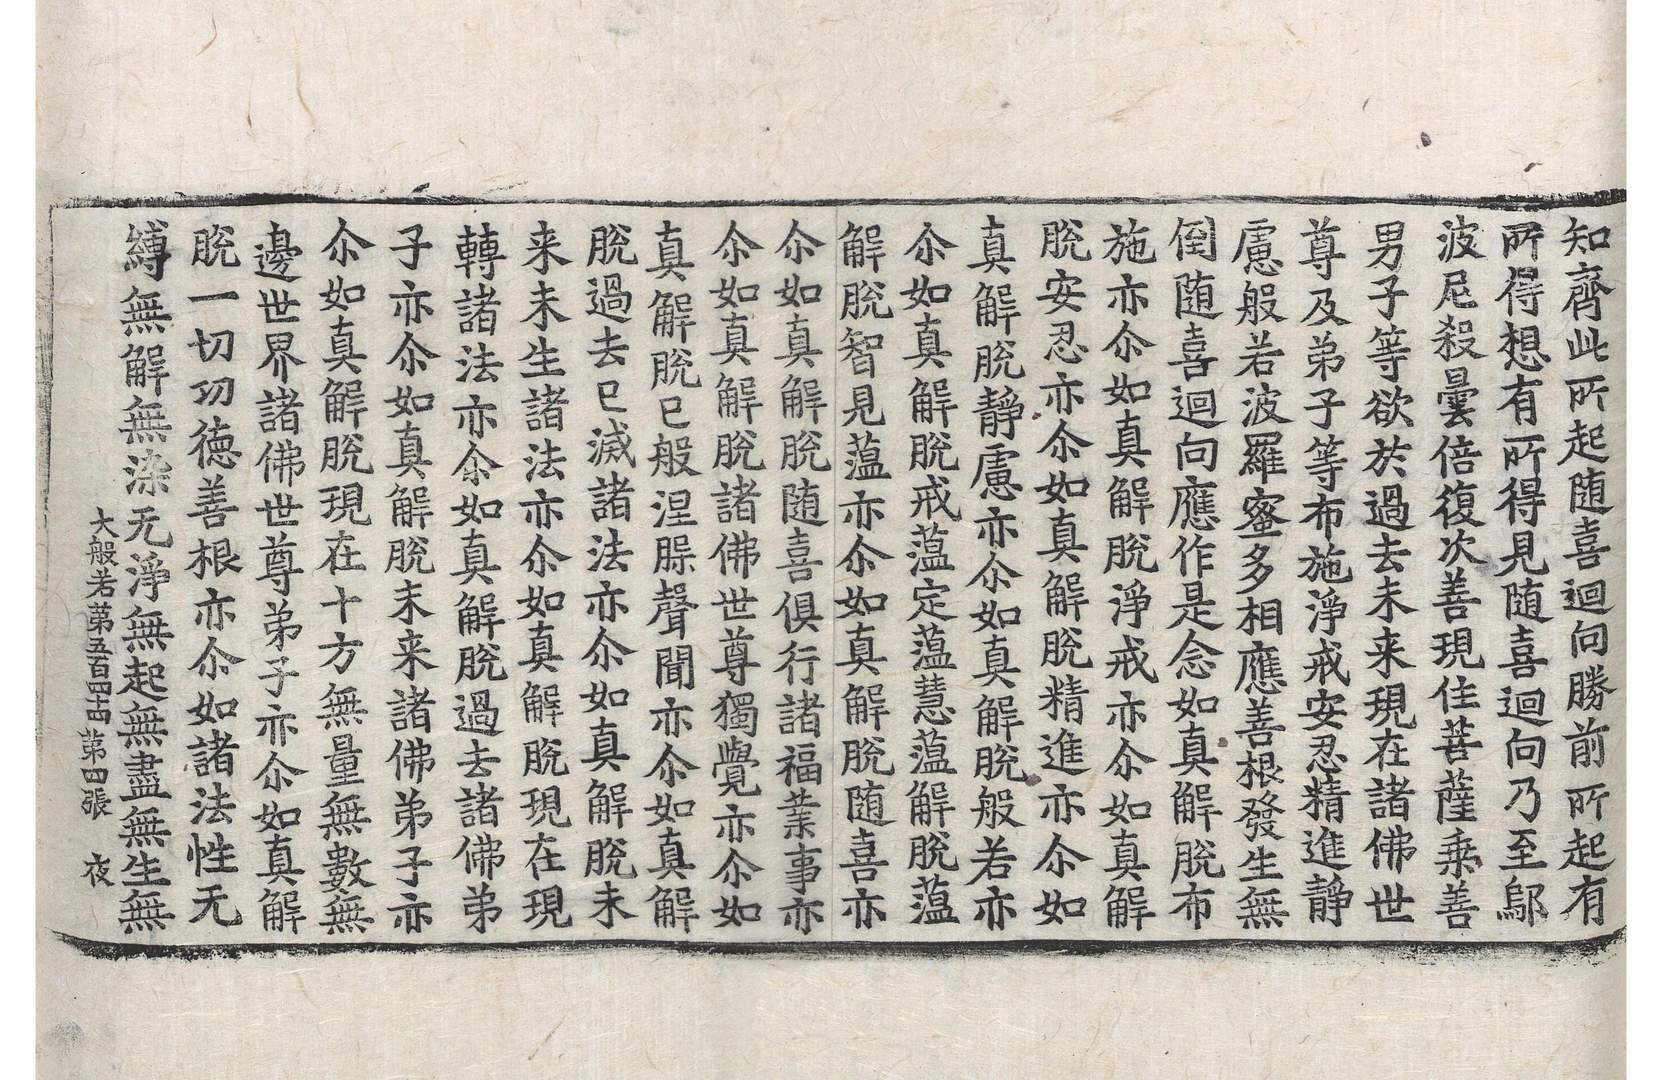 知齊此所起随喜迴向勝前所起有
所得想有所得見随喜迴向乃至鄔
波尼殺曇倍復次善現住菩薩乗善
男子等欲於過去未来現在諸佛世
尊及弟子等布施淨戒安忍精進靜
慮般若波羅蜜多相應善根發生無
倒随喜迴向應作是念如真解脫布
施亦尒如真解脫淨戒亦尒如真解
脫安忍亦尒如真解脫精進亦尒如
真解脫靜慮亦尒如真解脫般若亦
尒如真解脫戒蕰定蕰慧蕰解脫蕰
解脫智見蕰亦尒如真解脫随喜亦
尒如真解脫随喜俱行諸福業事亦
尒如真解脫諸佛世尊獨覺亦尒如
真解脫已般涅槃聲聞亦尒如真解
脫過去已滅諸法亦尒如真解脫未
来未生諸法亦尒如真解脫現在現
轉諸法亦尒如真解脫過去諸佛弟
子亦尒如真解脫未来諸佛弟子亦
尒如真解脫現在十方無量無數無
邊世界諸佛世尊弟子亦尒如真解
脫一切㓛德善根亦尒如諸法性无
縛無解無染无淨無起無盡無生無
大般若第五百四十四 第四張 夜